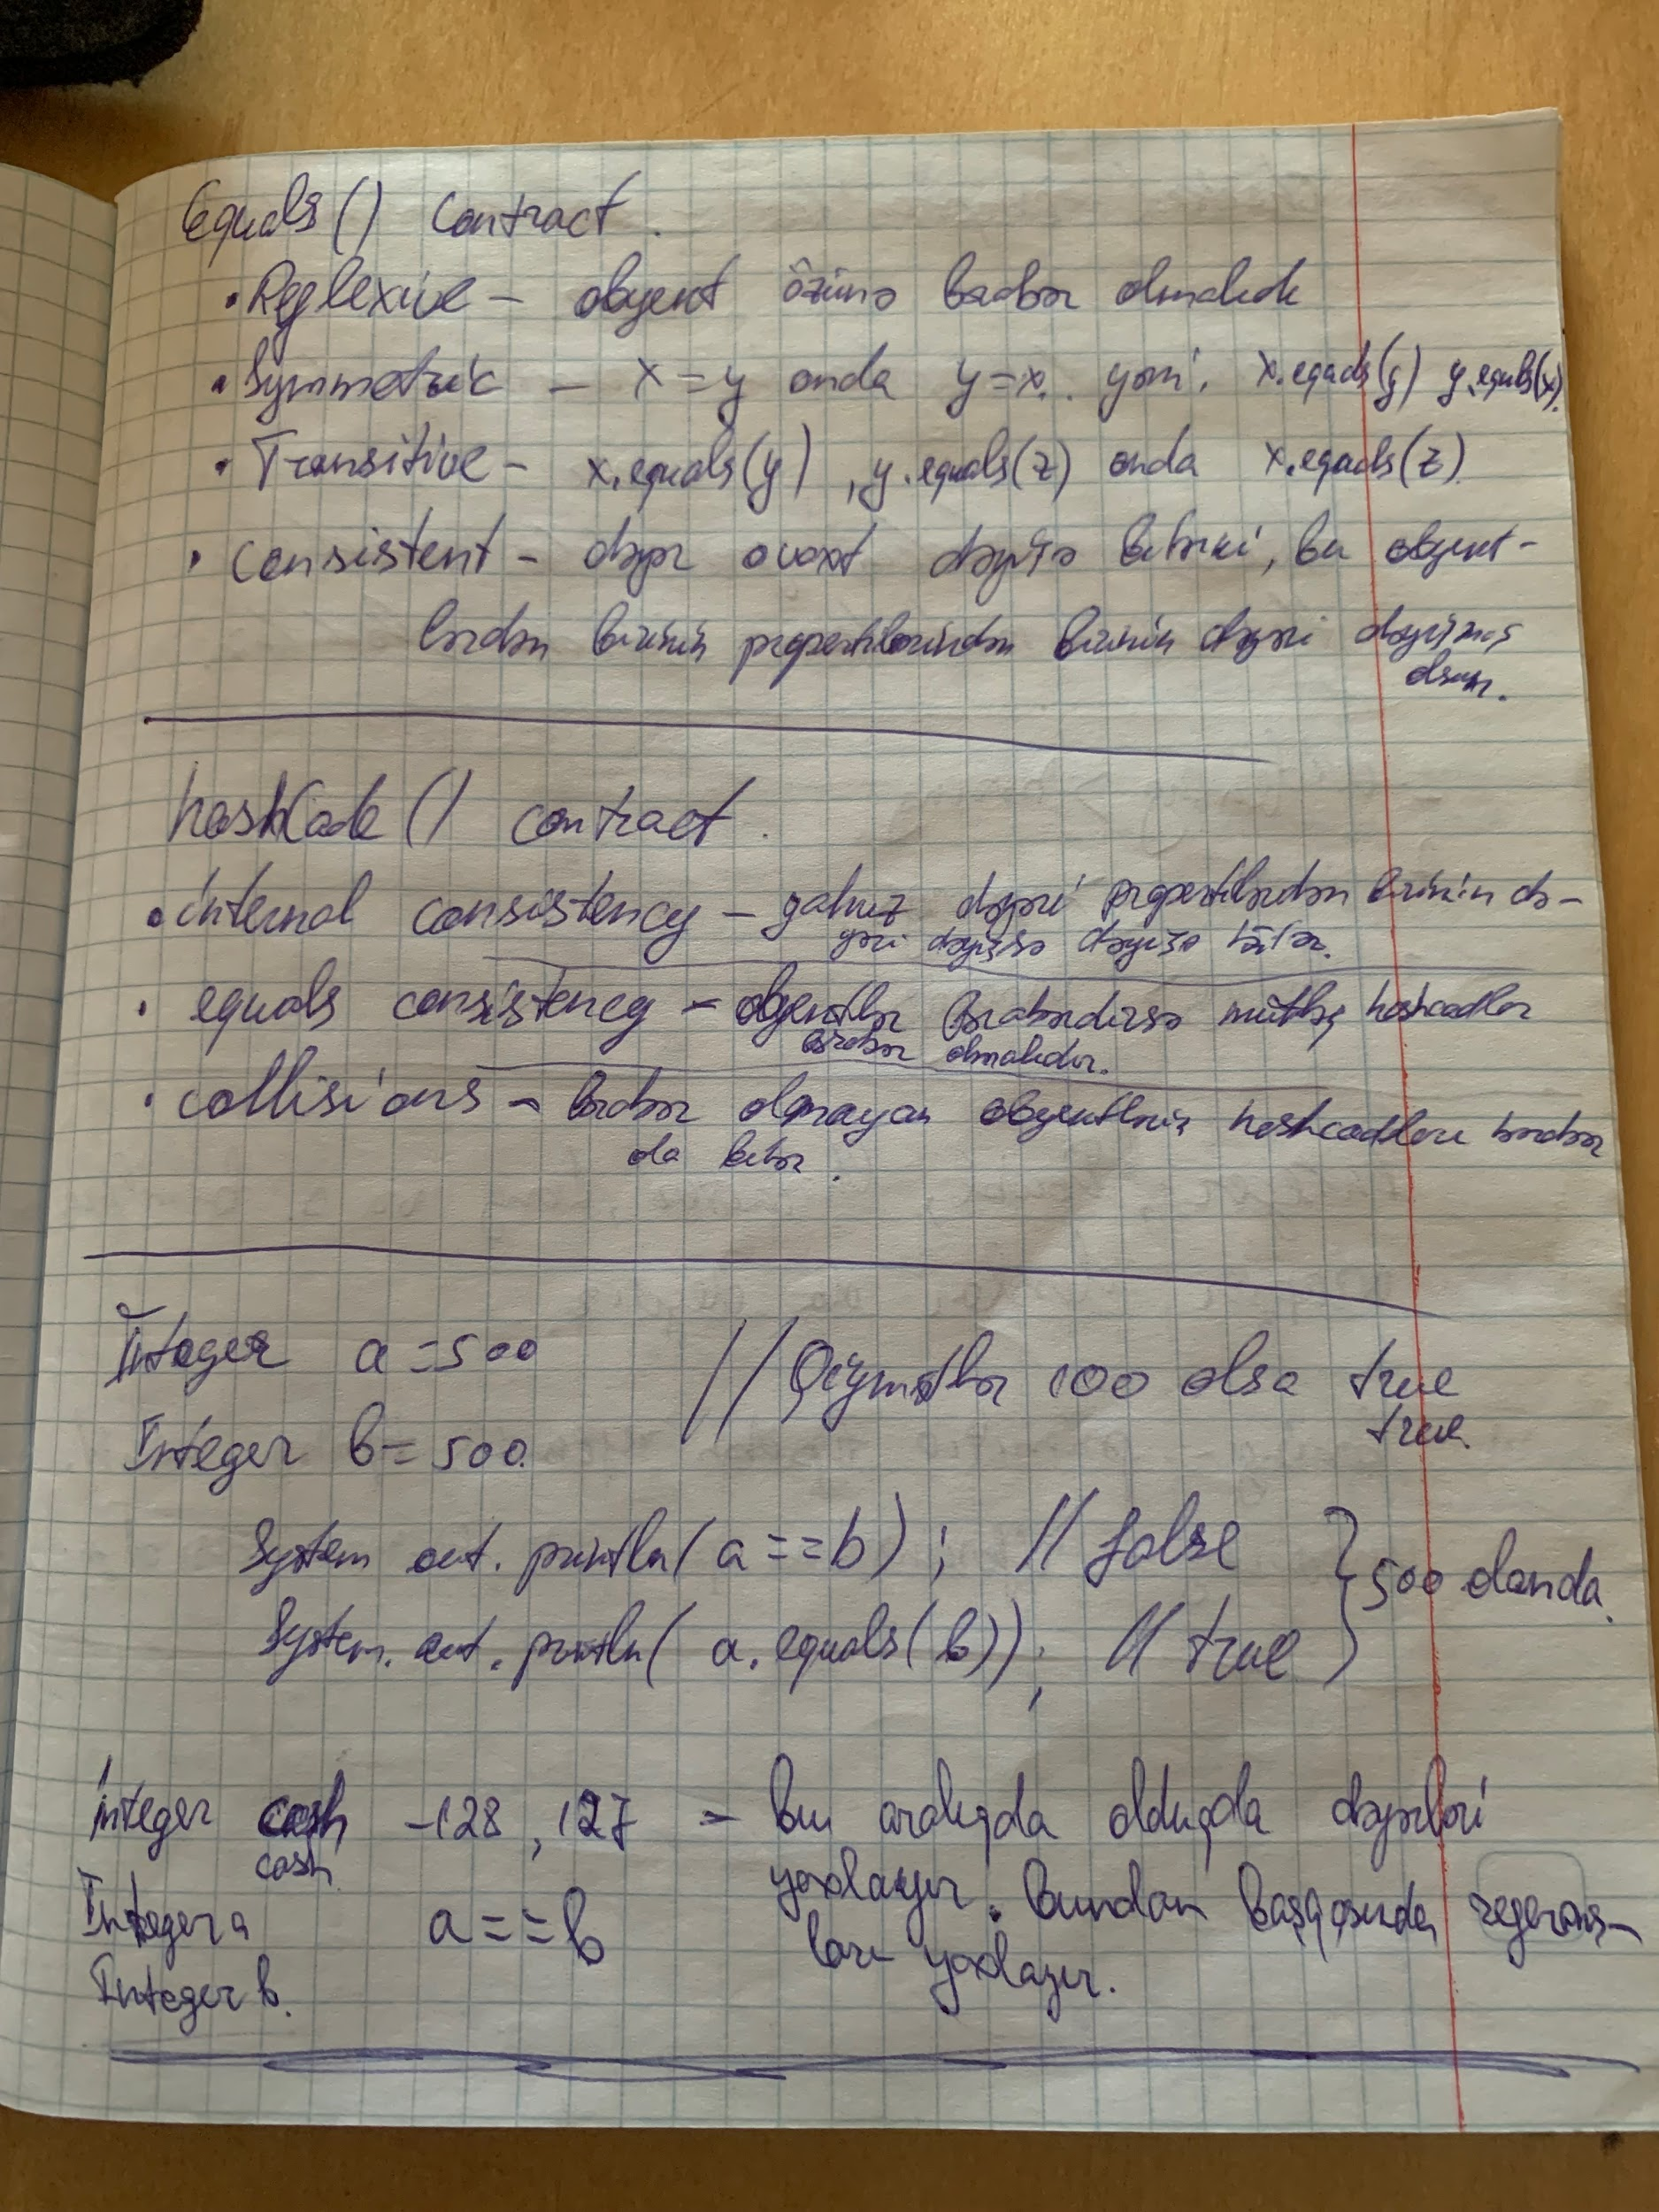 Equals() Contract.
• Reflexive – obyekt özünə bərabər olmalıdı
• Symmetric – x=y onda y=x. yəni. x.equals(y) y.equals(x).
• Transitive – x.equals(y) , y.equals(z) onda x.equals(z)
• Consistent – dəyər o vaxt dəyişə bilərki, bu obyekt-
lərdən birinin propertilərindən birinin dəyəri dəyişmiş
olsun.
hashCode() contract.
• internal consistency – yalnız dəyəri propertilərdən birinin də-
yəri dəyişsə dəyişə bilər.
• equals consistency – obyektlər bərabərdirsə mütləq hashcodlar
bərabər olmalıdır.
• collisions – bərabər olmayan obyektlərin hashcodları bərabər
ola bilər.
Integer a = 500 // Qiymətlər 100 olsa true
true.
Integer b = 500.
System out. println( a == b ) ; // false } 500 olanda.
System. out. println( a. equals( b )) ; // true
integer cash -128 , 127 – bu aralıqda olduqda dəyərləri
cash
yoxlayır. Bundan başqasında referans-
Integer a a == b
ları yoxlayır.
Integer b.